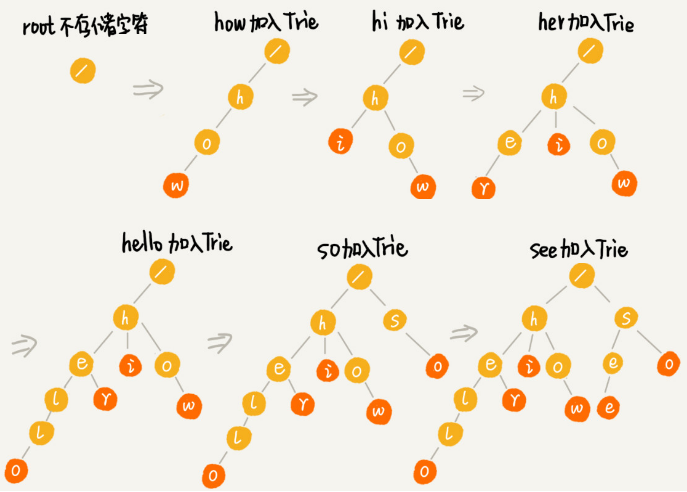 root不存储字符
/
how加入Trie
/
h
o
w
hi加入Trie
/
h
i o
w
her加入Trie
/
h
e i o
r w
hello加入Trie
/
h
e i o
l r w
l
o
so加入Trie
/
h s
e i o o
l r w
l
o
see加入Trie
/
h s
e i o e o
l r w e
l
o